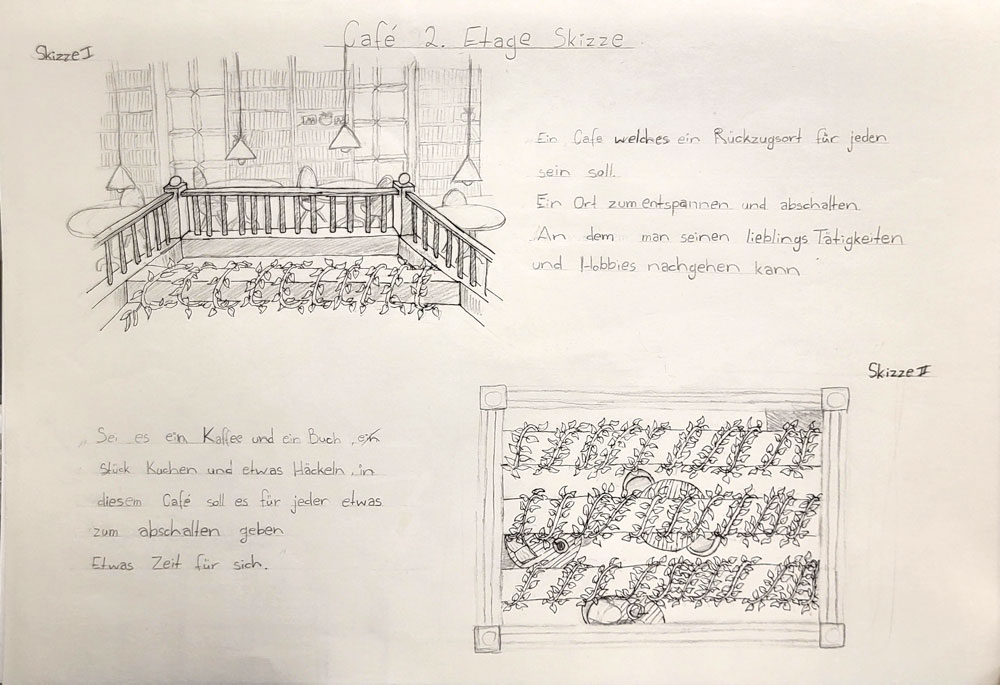 Café 2. Etage Skizze
Skizze I
Ein Cafe welches ein Rückzugsort für jeden
sein soll.
Ein Ort zum entspannen und abschalten
An dem man seinen lieblings Tätigkeiten
und Hobbies nachgehen kann
Skizze II
Sei es ein Kaffee und ein Buch, ein
Stück Kuchen und etwas Häckeln, in
diesem Café soll es für jeder etwas
zum abschalten geben
Etwas Zeit für sich.